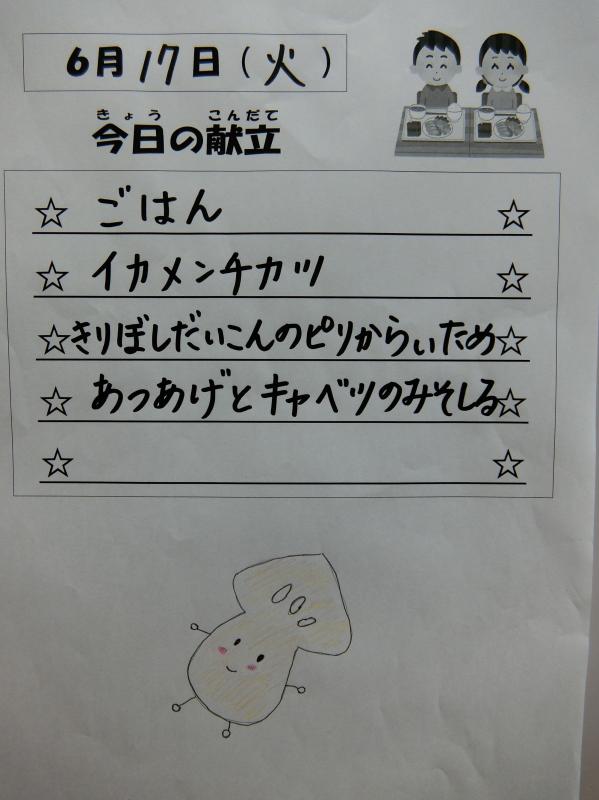 6月17日(火)
きょう こんだて
今日の献立
☆ ごはん ☆
☆ イカメンチカツ ☆
☆きりぼしだいこんのピリからいため☆
☆ あつあげとキャベツのみそしる☆
☆ ☆